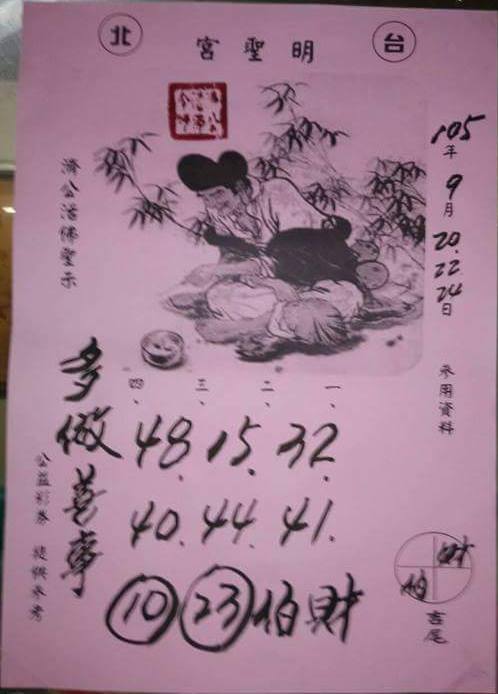 台北
明聖宮
105年9月20.22.24日
參用資料
濟公活佛聖示
一、
二、
三、
四、
32.
15.
48
41.
44.
40.
23 10
伯財
多做善事
公益彩券 提供參考
財
伯
吉尾